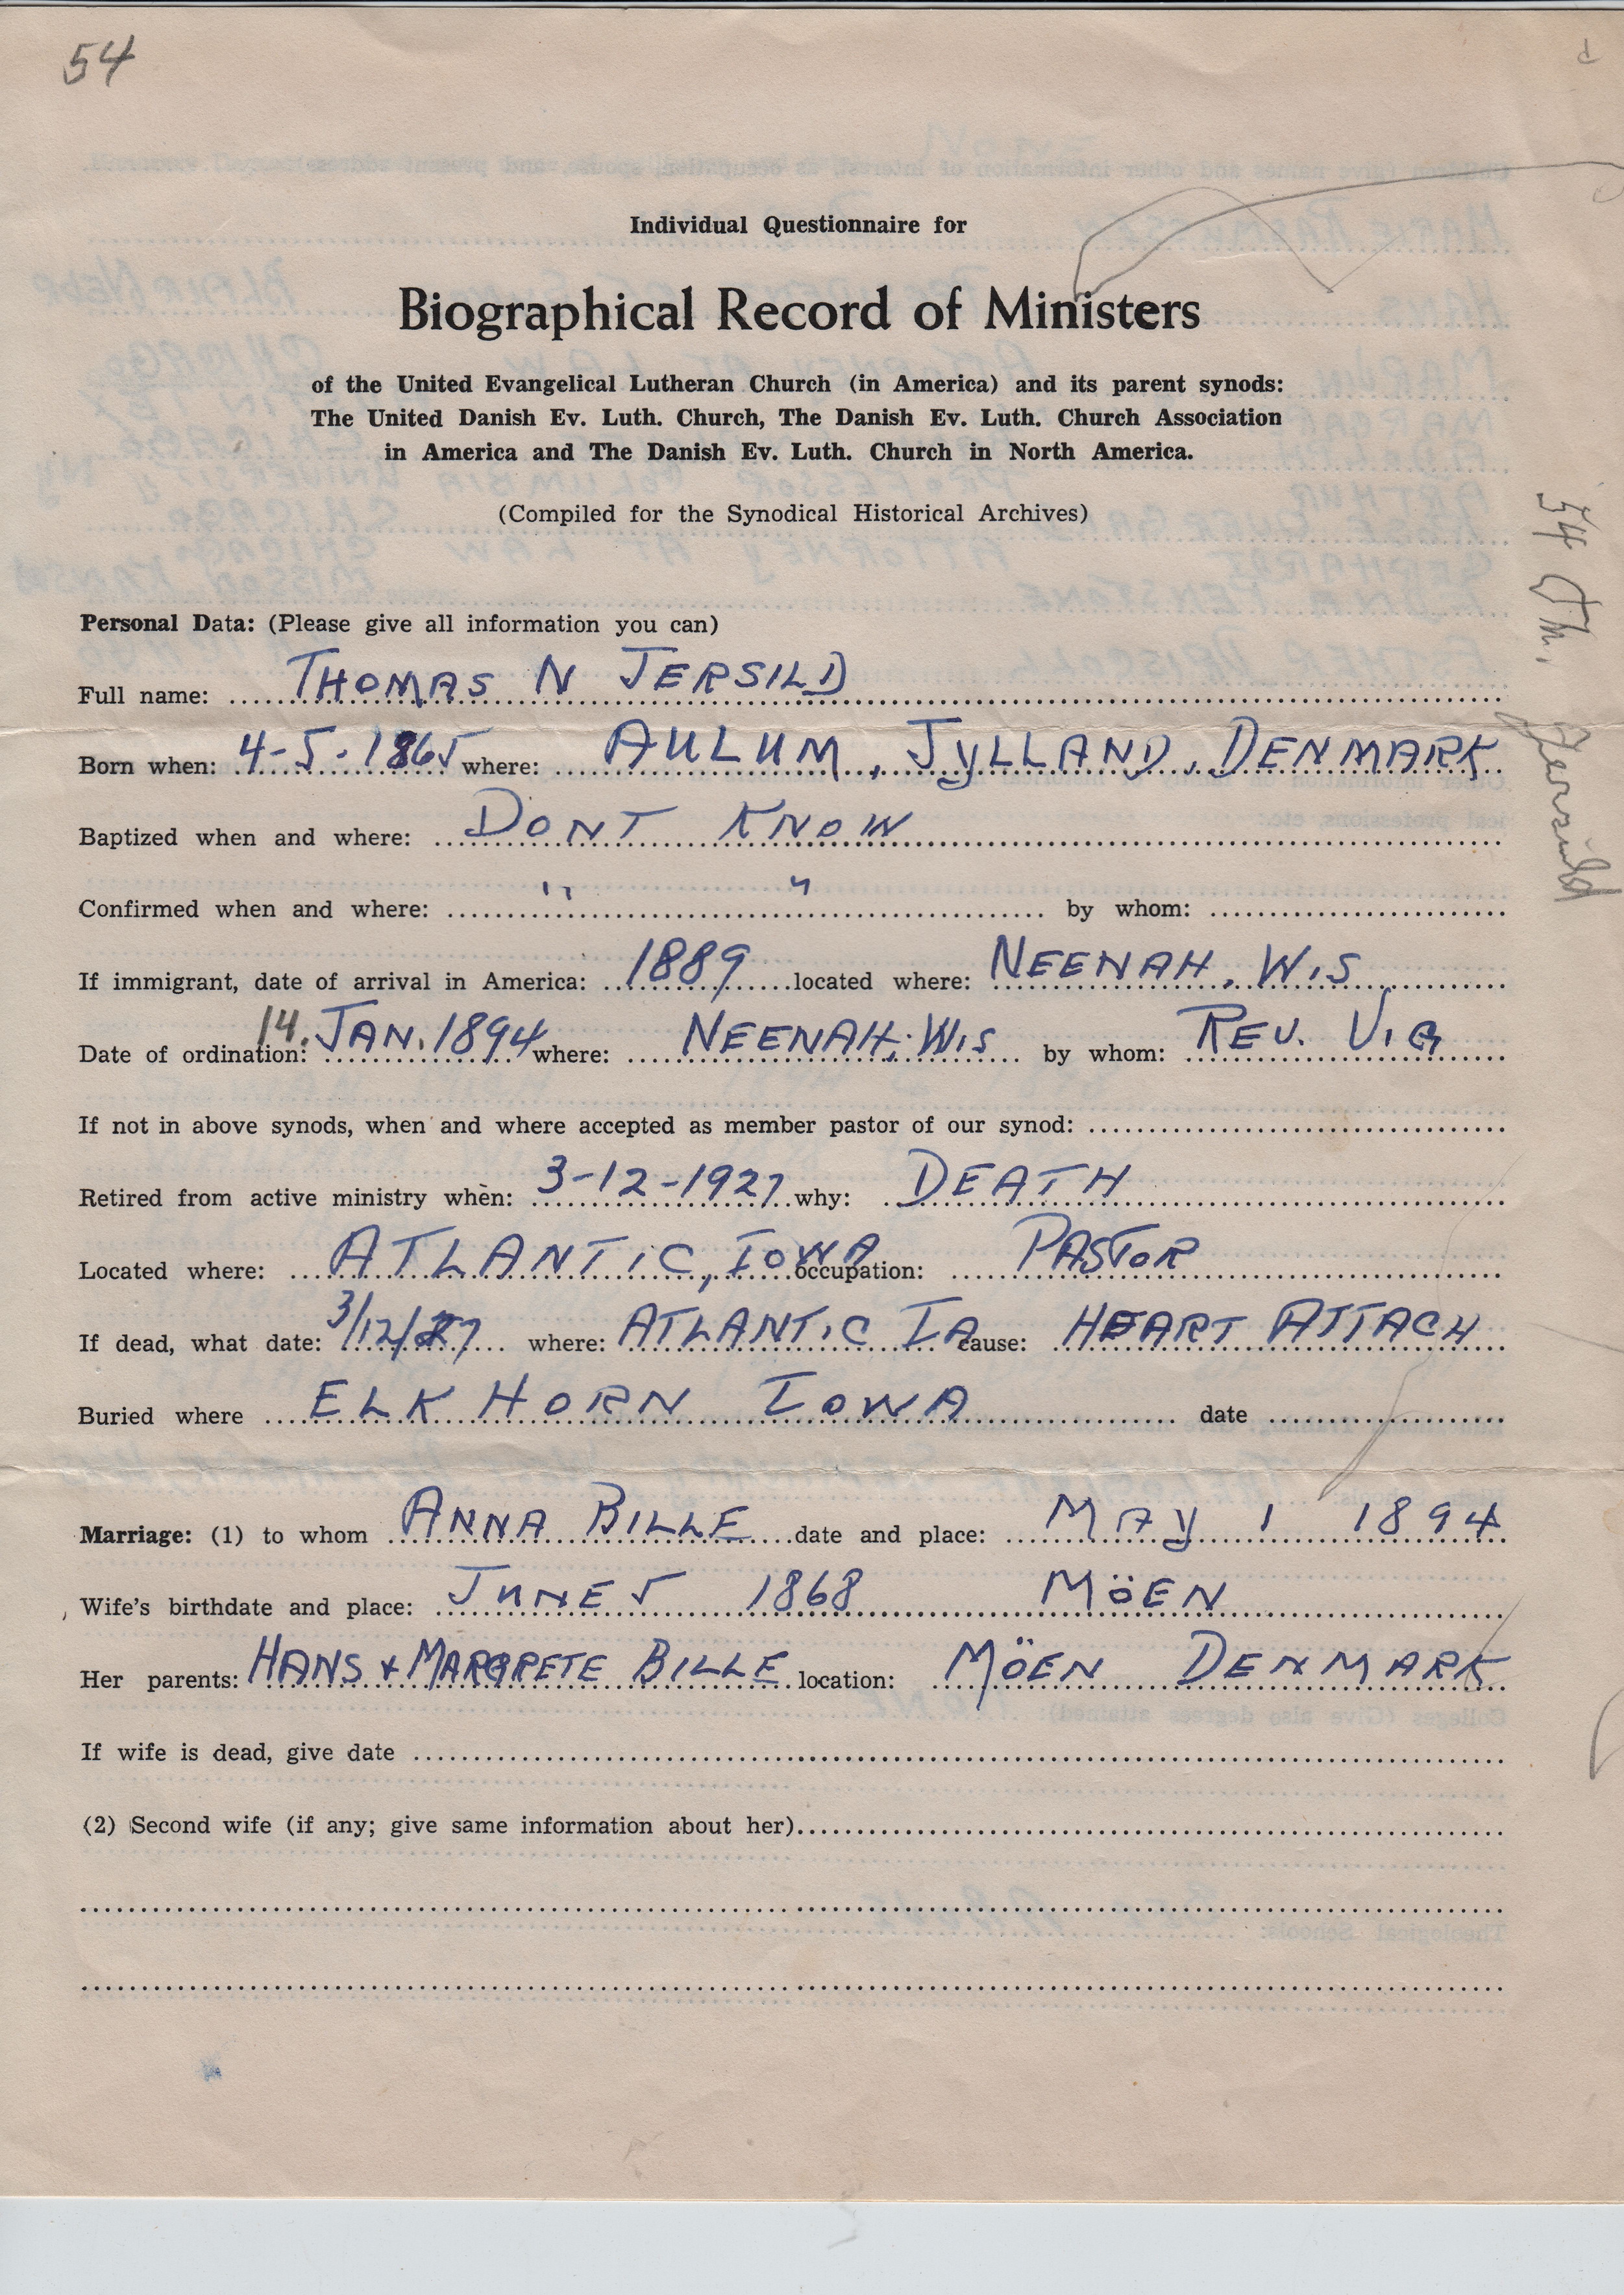 54
Individual Questionnaire for
Biographical Record of Ministers
of the United Evangelical Lutheran Church (in America) and its parent synods:
The United Danish Ev. Luth. Church, The Danish Ev. Luth. Church Association
in America and The Danish Ev. Luth. Church in North America.
(Compiled for the Synodical Historical Archives)
54 Th. Jersild
Personal Data: (Please give all information you can)
Full name: THOMAS N JERSILD
Born when: 4-5-1865 where: AULUM, JYLLAND, DENMARK
Baptized when and where: DONT KNOW
Confirmed when and where: " " by whom:
If immigrant, date of arrival in America: 1889 located where: NEENAH, WIS
Date of ordination: 14. JAN. 1894 where: NEENAH, WIS by whom: REV. VIG
If not in above synods, when and where accepted as member pastor of our synod:
Retired from active ministry when: 3-12-1927 why: DEATH
Located where: ATLANTIC, IOWA occupation: PASTOR
If dead, what date: 3/12/27 where: ATLANTIC IA cause: HEART ATTACH
Buried where ELK HORN IOWA date
Marriage: (1) to whom ANNA BILLE date and place: MAY 1 1894
Wife's birthdate and place: JUNE 5 1868 MÖEN
Her parents: HANS + MARGRETE BILLE location: MÖEN DENMARK
If wife is dead, give date
(2) Second wife (if any; give same information about her)